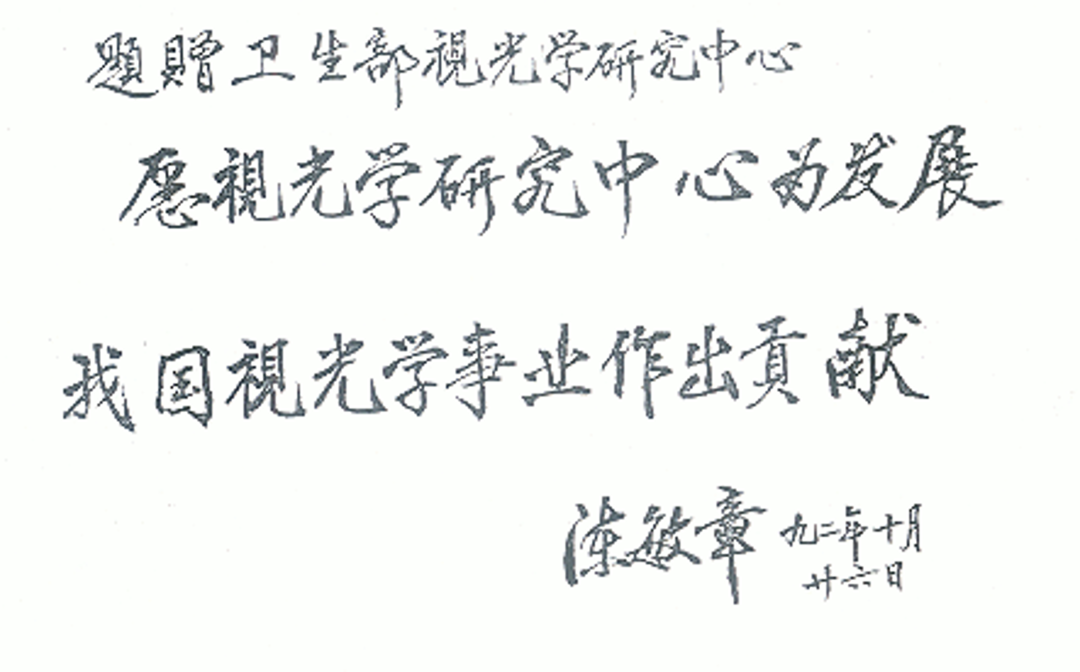 題贈卫生部視光学研究中心
愿視光学研究中心为发展
我国視光学事业作出貢献
陈敏章 九二年十月
廿六日